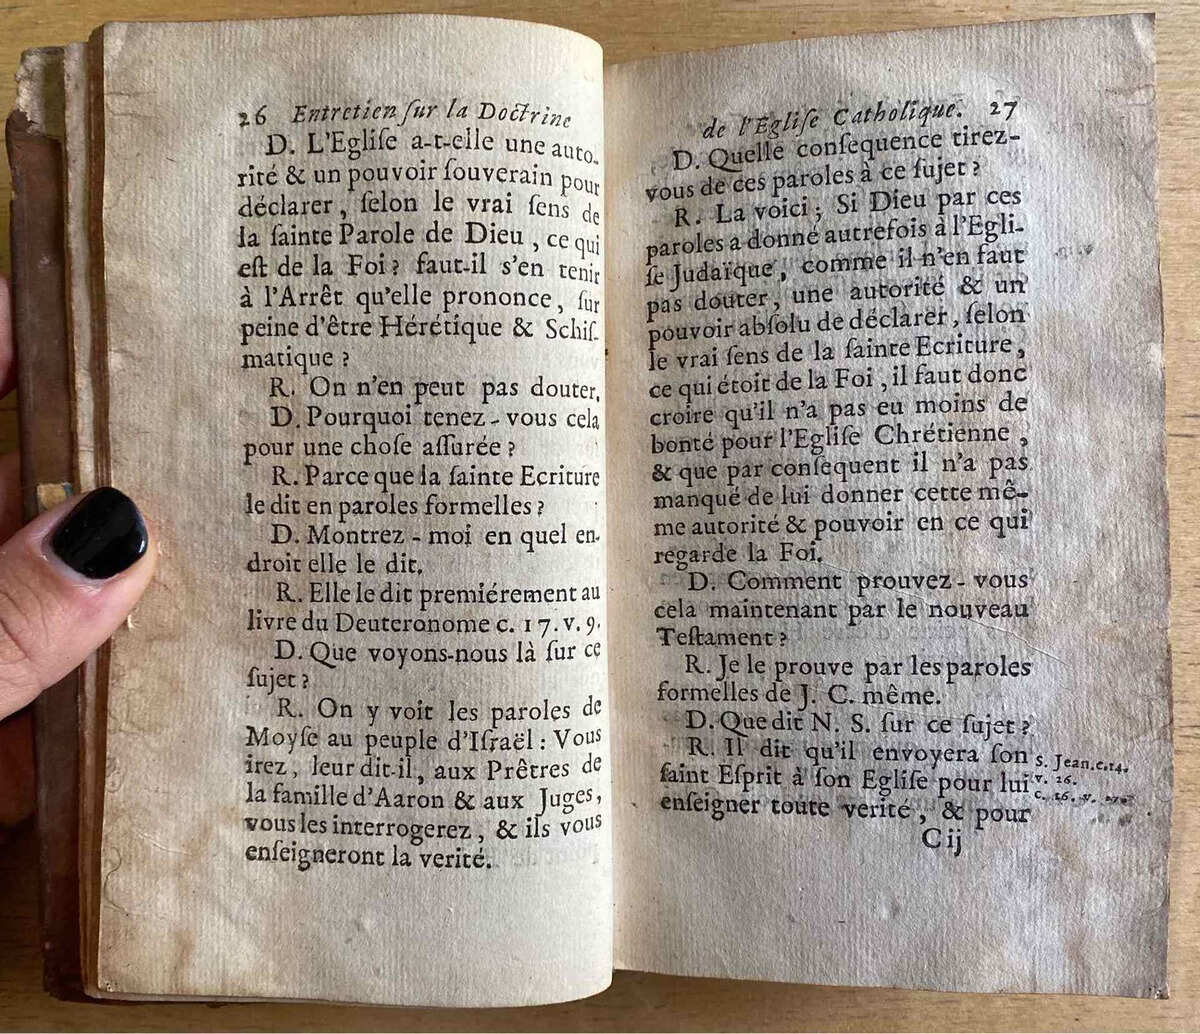 26 Entretien ſur la Doctrine
D. L'Egliſe a-t-elle une auto-
rité & un pouvoir ſouverain pour
déclarer, ſelon le vrai ſens de
la ſainte Parole de Dieu, ce qui
eſt de la Foi? faut-il s'en tenir
à l'Arrêt qu'elle prononce, ſur
peine d'être Hérétique & Schiſ-
matique?
R. On n'en peut pas douter.
D. Pourquoi tenez-vous cela
pour une choſe aſſurée?
R. Parce que la ſainte Ecriture
le dit en paroles formelles?
D. Montrez-moi en quel en-
droit elle le dit.
R. Elle le dit premiérement au
livre du Deuteronome c. 17. v. 9.
D. Que voyons-nous là ſur ce
ſujet?
R. On y voit les paroles de
Moyſe au peuple d'Iſraël: Vous
irez, leur dit-il, aux Prêtres de
la famille d'Aaron & aux Juges,
vous les interrogerez, & ils vous
enſeigneront la verité.
de l'Egliſe Catholique. 27
D. Quelle conſequence tirez-
vous de ces paroles à ce ſujet?
R. La voici; Si Dieu par ces
paroles a donné autrefois à l'Egli-
ſe Judaïque, comme il n'en faut
pas douter, une autorité & un
pouvoir abſolu de déclarer, ſelon
le vrai ſens de la ſainte Ecriture,
ce qui étoit de la Foi, il faut donc
croire qu'il n'a pas eu moins de
bonté pour l'Egliſe Chrétienne,
& que par conſequent il n'a pas
manqué de lui donner cette mê-
me autorité & pouvoir en ce qui
regarde la Foi.
D. Comment prouvez-vous
cela maintenant par le nouveau
Teſtament?
R. Je le prouve par les paroles
formelles de J. C. même.
D. Que dit N. S. ſur ce ſujet?
R. Il dit qu'il envoyera ſon
ſaint Eſprit à ſon Egliſe pour lui
enſeigner toute verité, & pour
S. Jean. c. 14.
v. 26.
c. 16. v.
C ij